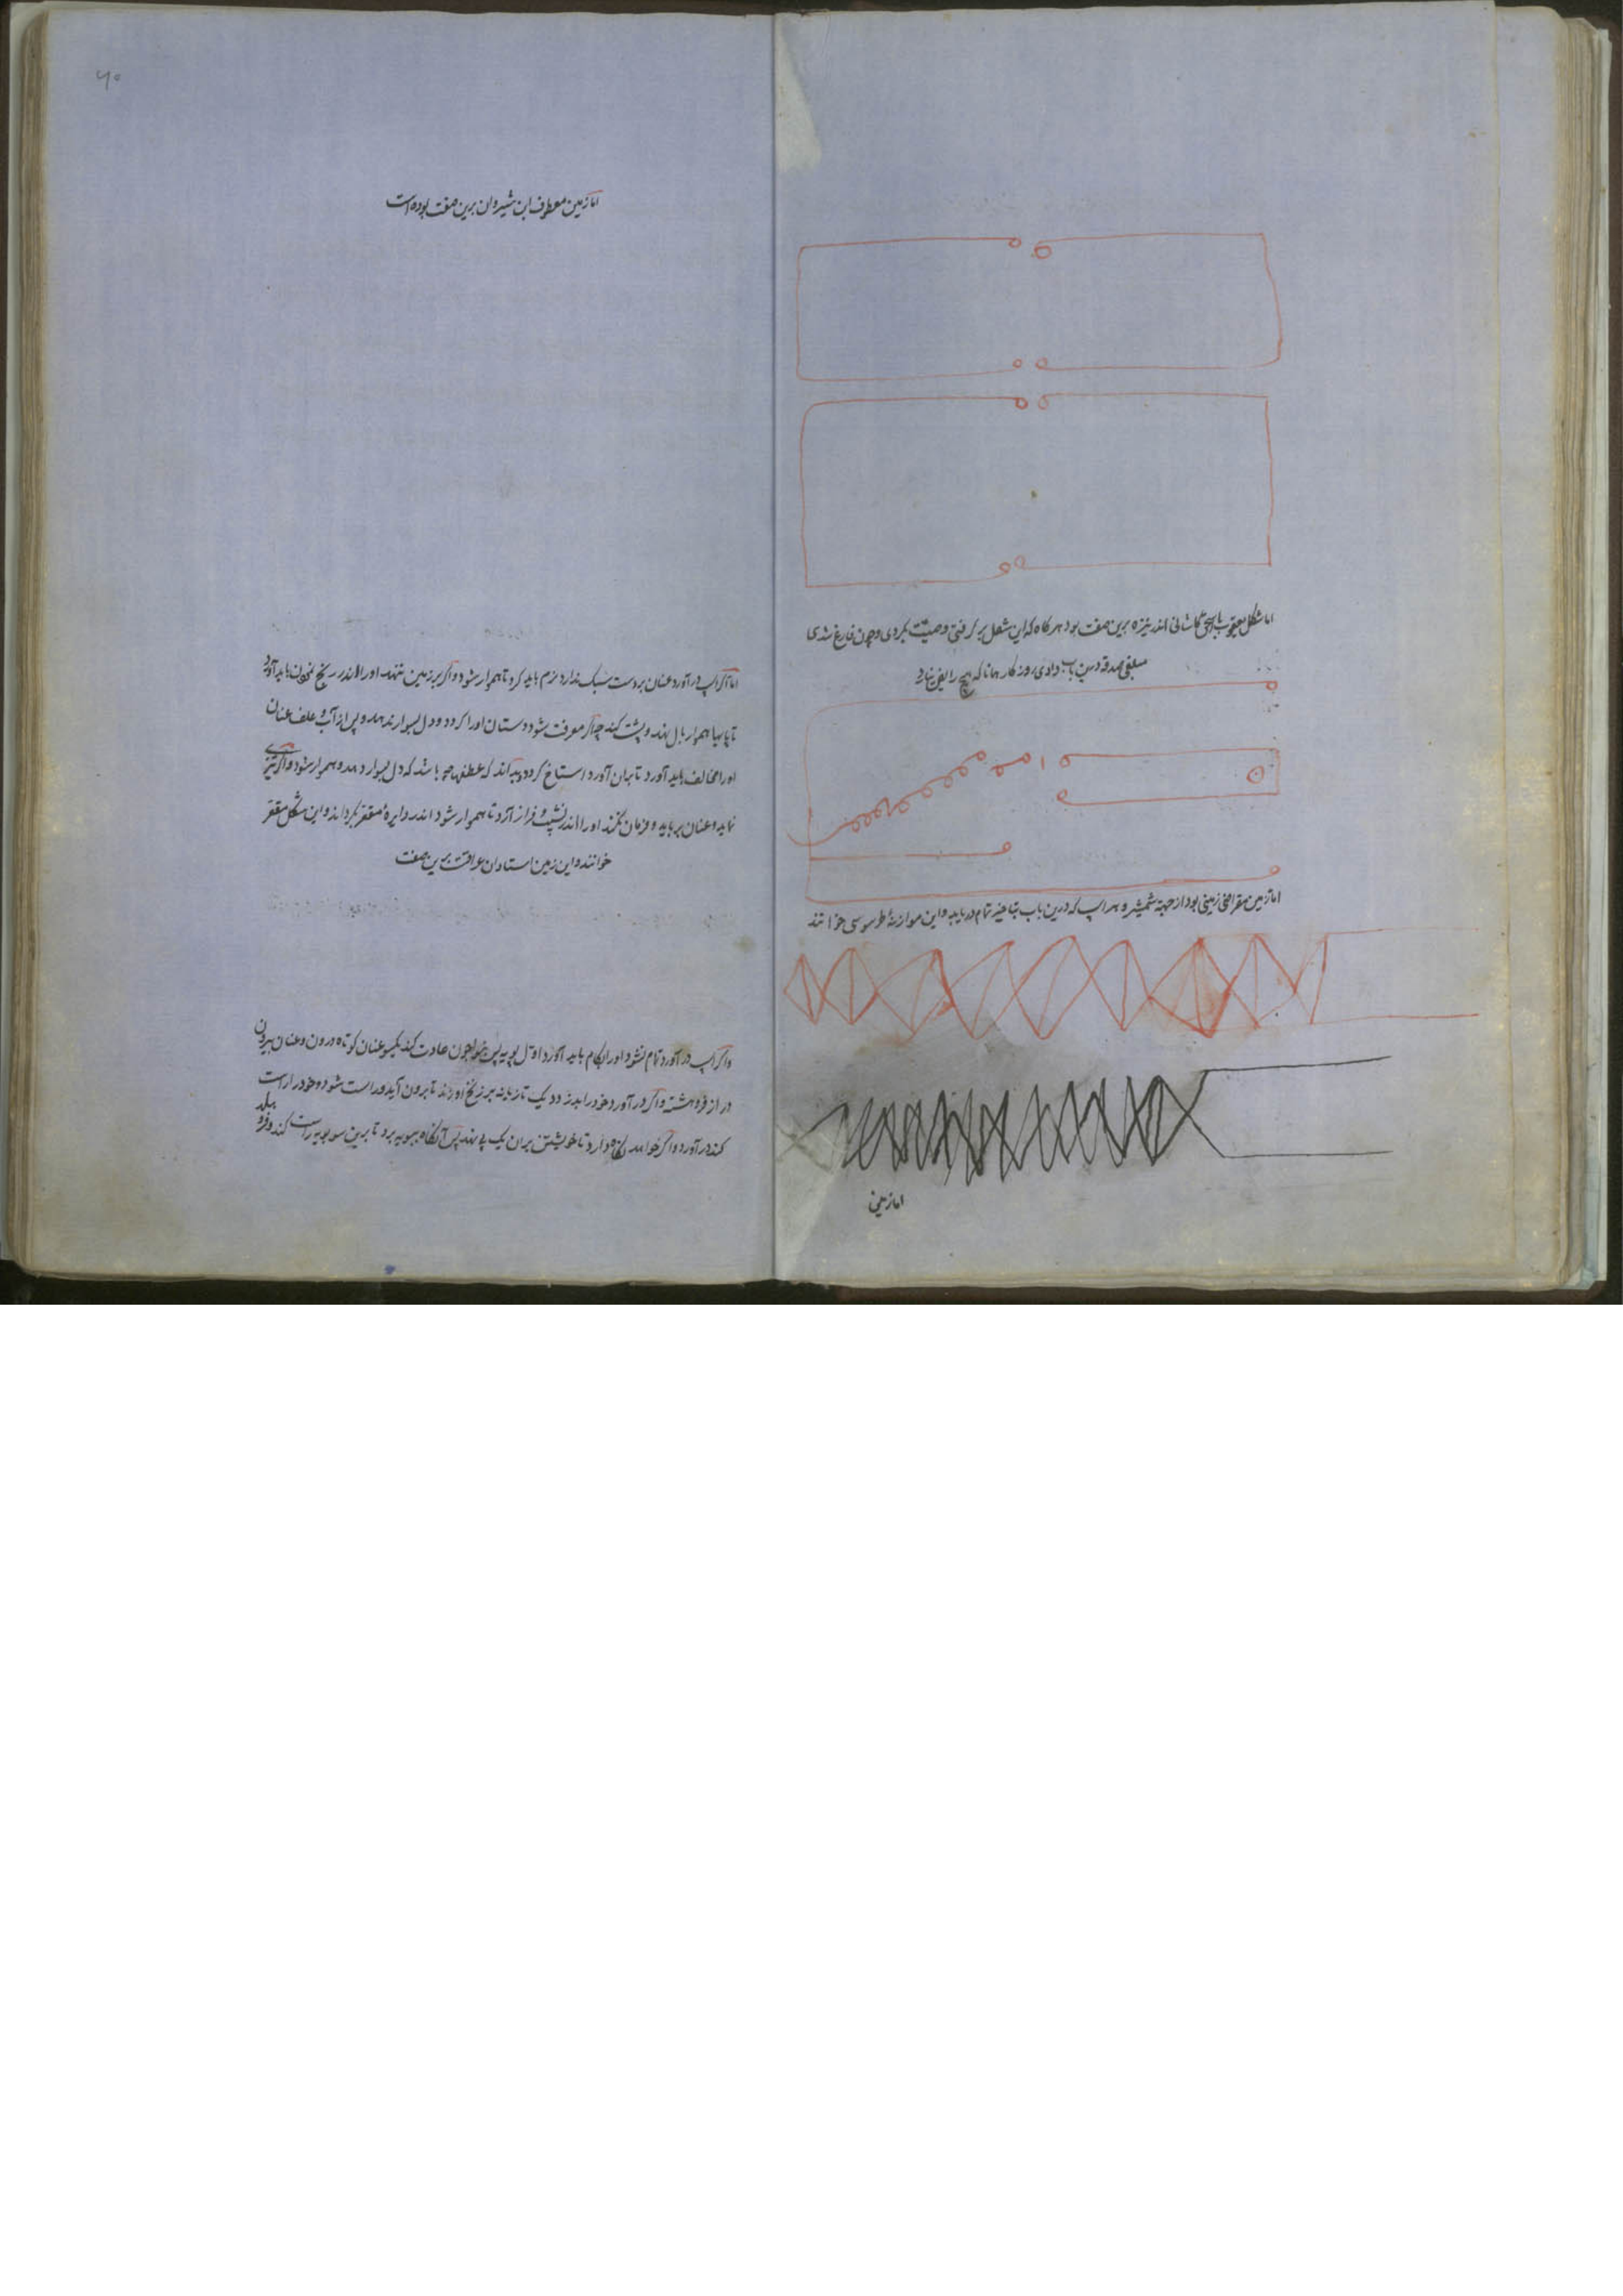 اما شکل یعقوب اسحق کاشانی اندر نیزه برین صفت بود هرگاه که این شغل برگرفتی وصیت بکردی و چون فارغ شدی
مبلغی صدقه دادی روزگار همانا که هیچ رایض نیارد
اما زمین مقراضی زمینی بود از جهة شمشیر و هر اسپ که درین باب تمام دریابد و این موازنهٔ طرسوسی خوانند
اما زمین
۴۰
اما زمین معطوف ابن شیروان برین صفت بوده است
اما اگر اسپ درآورد عنان بر دست سبک ندارد نرم باید کرد تا هموار شود و اگر بر زمین ننهد او را اندر ریخ باید آورد
تا پایها هموار بال نهد و پشت کند چه اگر معرفت شود دستان او را گردد و دل بسوار ندهد و پس از آب و علف عنان
او را مخالف باید آورد تا بران آورد استاخ گردد و بداند که عطفها چه باشد که دل بسوار دهد و هموار شود و اگر تیزی
نماید و عنان برباید و فرمان نکند او را اندر نشیب و فراز آرد تا هموار شود اندر دایرهٔ مقعر بگرداند و این شکل مقعر
خوانند و این زمین استادان عراقست برین صفت
و اگر اسپ درآورد تمام نشود او را بکام باید آورد اول بپویه پس چون عادت کند یکسو عنان کوتاه درون و عنان بیرون
دراز فروهشته و اگر درآورد خود را بدزدد یک تازیانه بر زنخ او زند تا برون آید و راست شود و خود را راست
کند درآورد و اگر خواهد نگاه دارد تا خویشتن بران یک پی نهد پس آنگاه بپویه برد تا برین سو بپویه راست کند و فرو
هلد